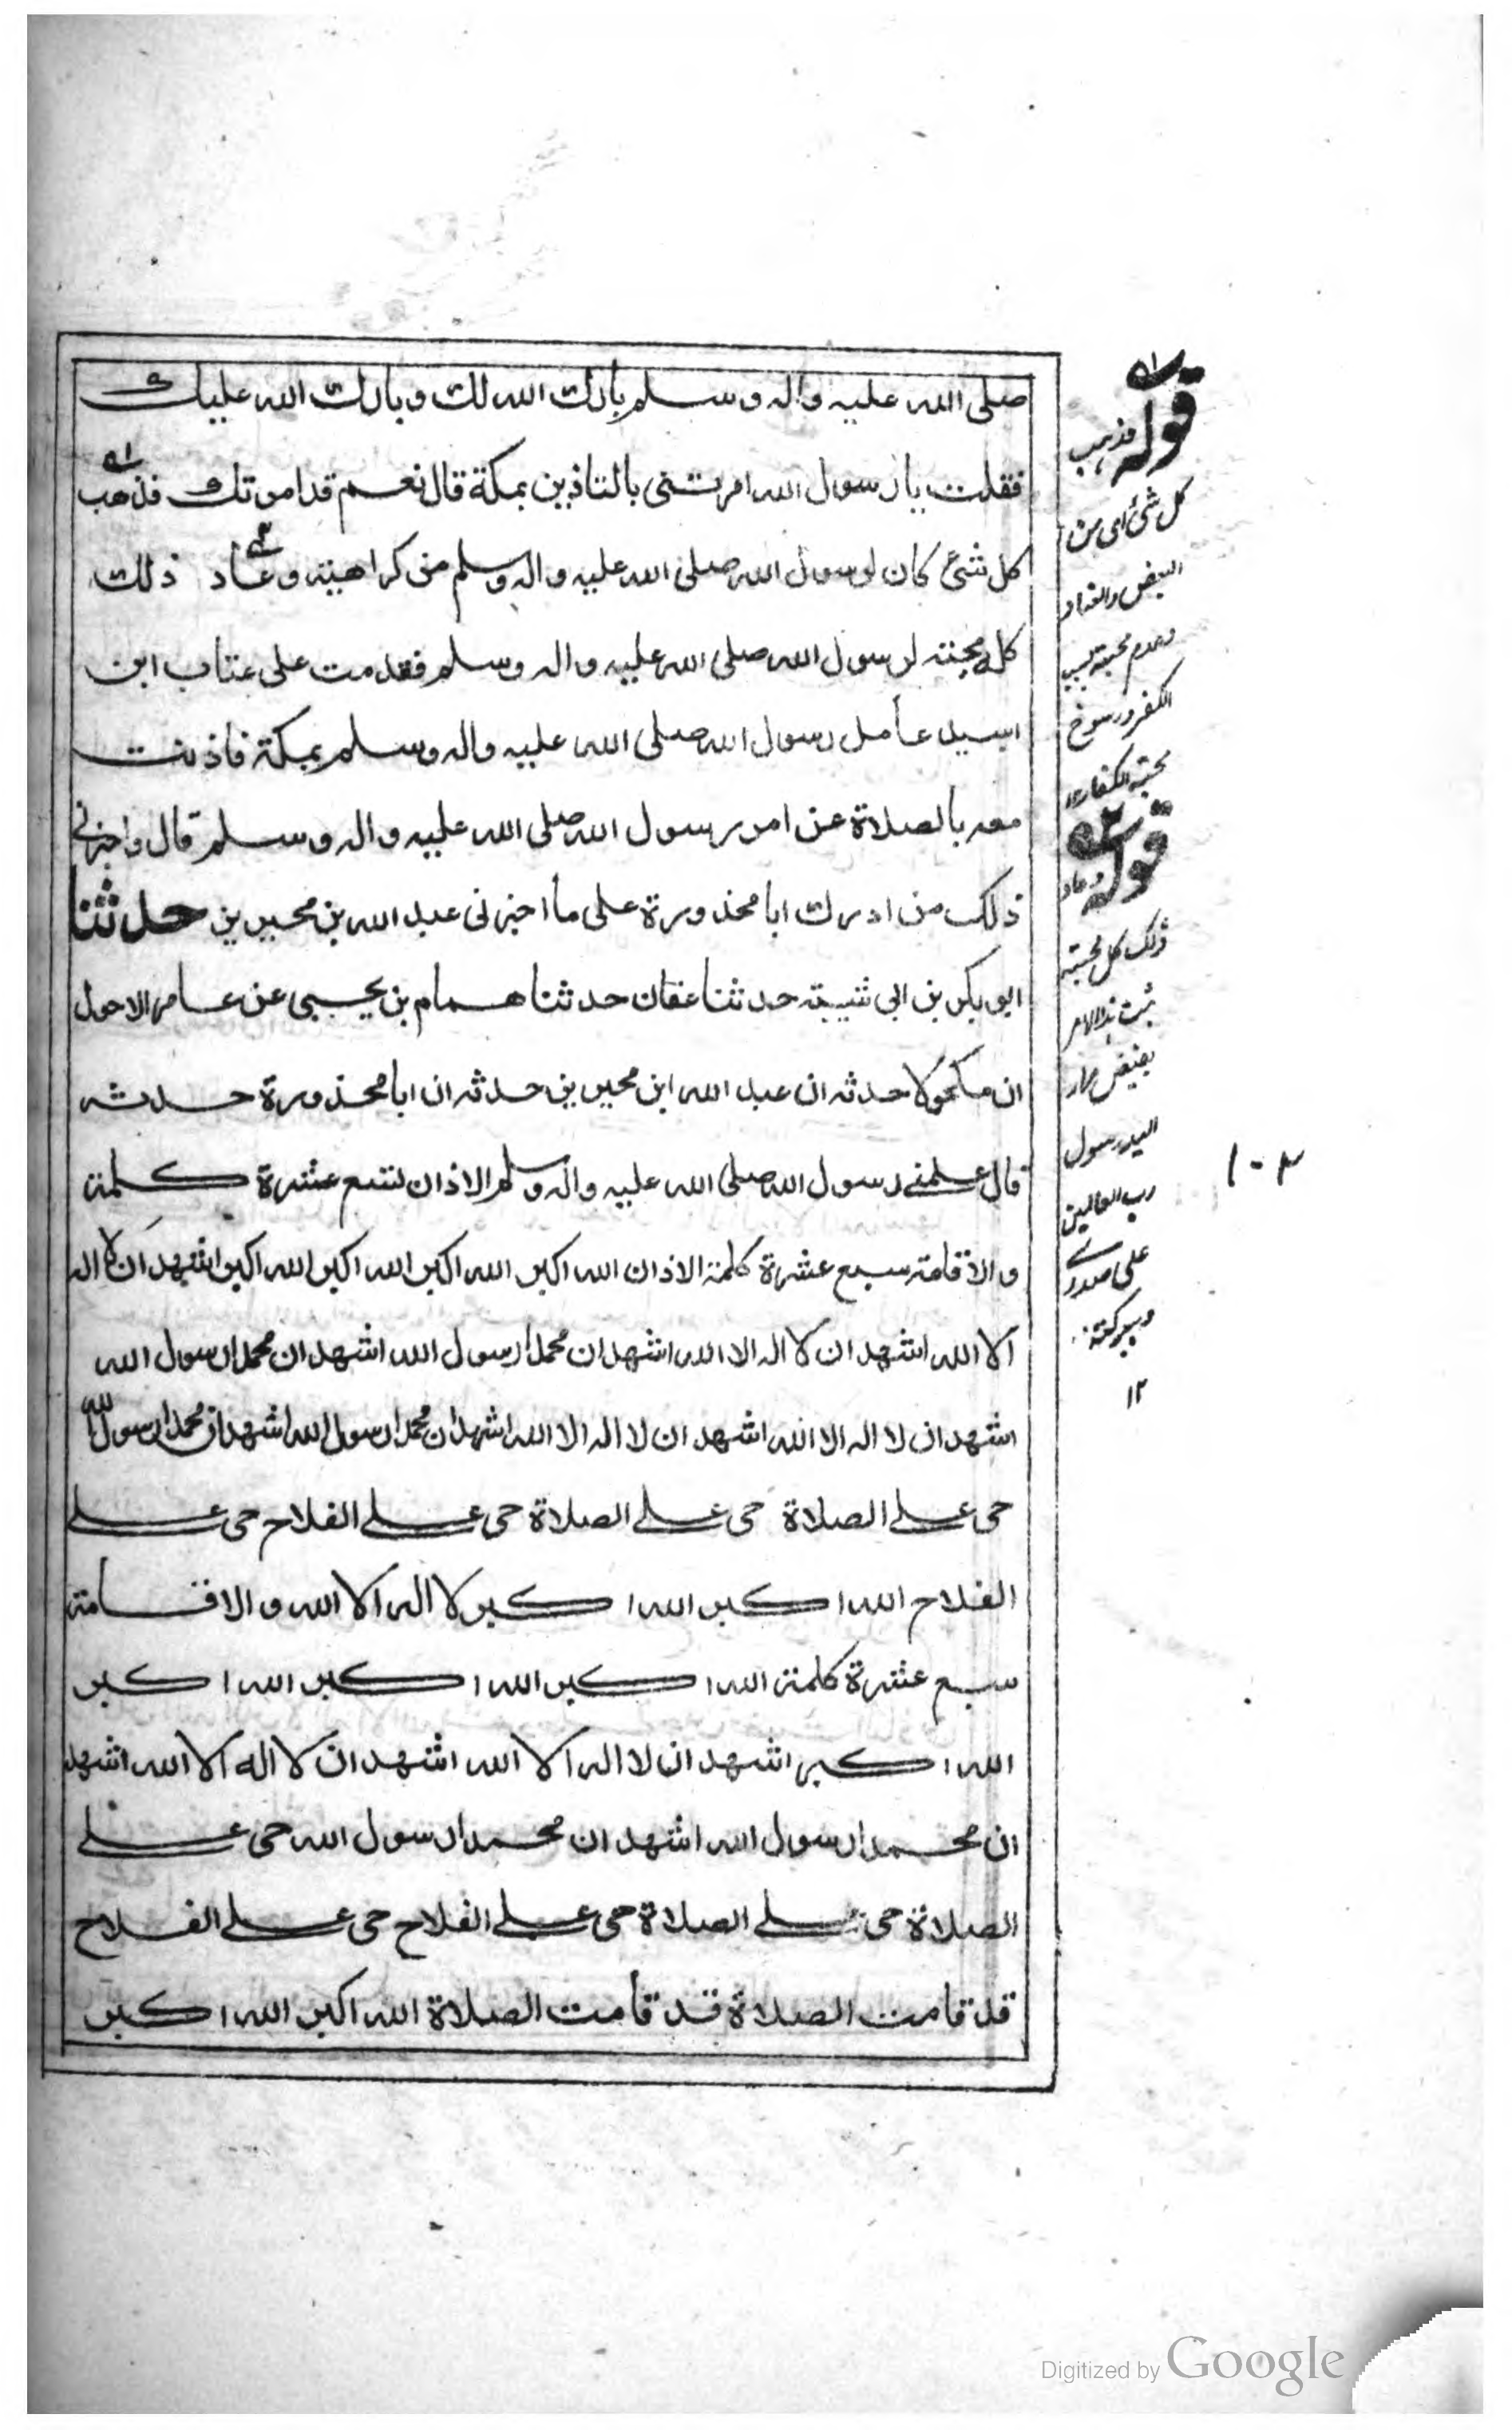 صلى الله عليه واله وسلم بارك الله لك وبارك الله عليك
فقلت يا رسول الله امرتنى بالتاذين بمكة قال نعم قد امرتك فذهب
كل شئ كان لرسول الله صلى الله عليه واله وسلم من كراهيته وعاد ذلك
كله محبته لرسول الله صلى الله عليه واله وسلم فقدمت على عتاب ابن
اسيد عامل رسول الله صلى الله عليه واله وسلم بمكة فاذنت
معه بالصلاة عن امر رسول الله صلى الله عليه واله وسلم قال واخبرنى
ذلك من ادرك ابا محذورة على ما اخبرنى عبد الله بن محيريز حدثنا
ابو بكر بن ابى شيبة حدثنا عفان حدثنا همام بن يحيى عن عامر الاحول
ان مكحولا حدثه ان عبد الله ابن محيريز حدثه ان ابا محذورة حدثه
قال علمنے رسول الله صلى الله عليه واله وسلم الاذان تسع عشرة كلمة
والاقامة سبع عشرة كلمة الاذان الله اكبر الله اكبر الله اكبر الله اكبر اشهد ان لا اله
الا الله اشهد ان لا اله الا الله اشهد ان محمدا رسول الله اشهد ان محمدا رسول الله
اشهد ان لا اله الا الله اشهد ان لا اله الا الله اشهد ان محمدا رسول الله اشهد ان محمدا رسول الله
حى علے الصلاة حى علے الصلاة حى علے الفلاح حى علے
الفلاح الله اكبر الله اكبر لا اله الا الله والاقامة
سبع عشرة كلمة الله اكبر الله اكبر الله اكبر
الله اكبر اشهد ان لا اله الا الله اشهد ان لا اله الا الله اشهد
ان محمدا رسول الله اشهد ان محمدا رسول الله حى علے
الصلاة حى علے الصلاة حى علے الفلاح حى علے الفلاح
قد قامت الصلاة قد قامت الصلاة الله اكبر الله اكبر
قوله فذهب
كل شئ اى من
البغض
وعدم محبته بسبب
الكفر ورسوخ
محبة الكفار ١٢
قوله وعاد
ذلك كل محبته
اليد رسول
رب العالمين
على صدرے
وببركته
١٢
١٠٢
Digitized by Google